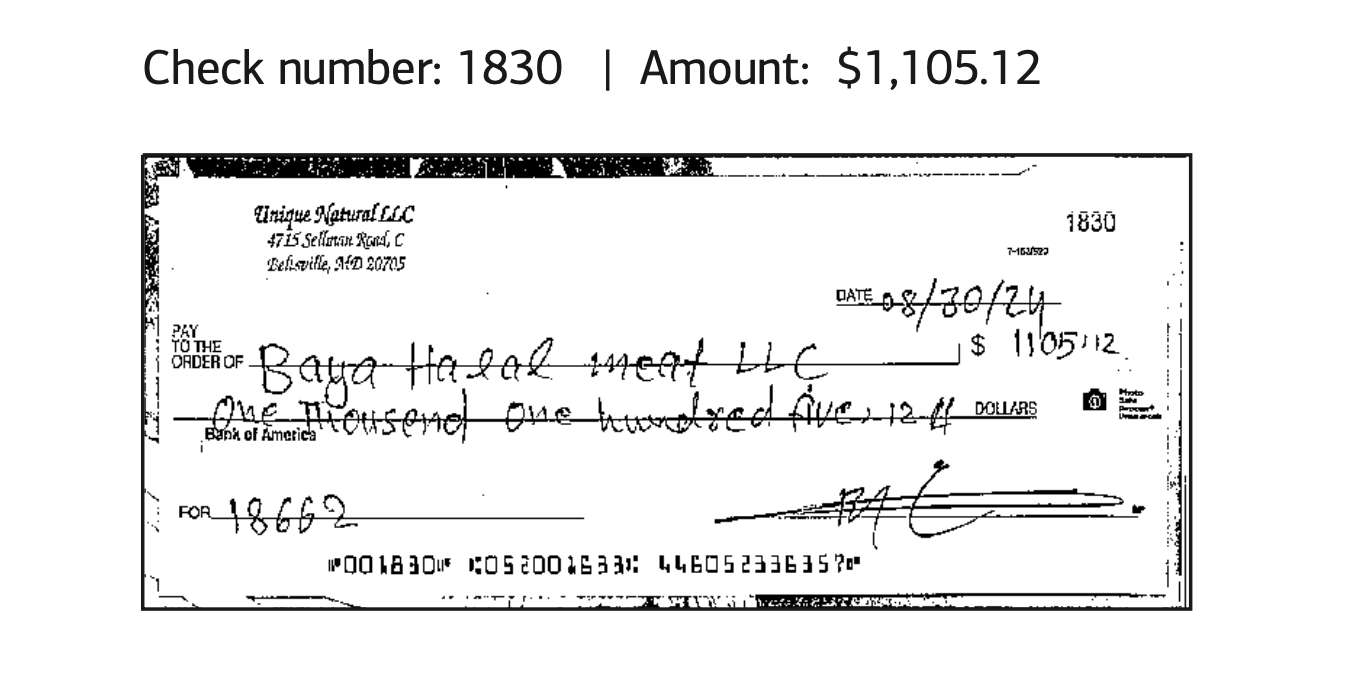 Check number: 1830 | Amount: $1,105.12
Unique Natural LLC
4715 Sellman Road, C
Beltsville, MD 20705
1830
DATE 08/30/24
PAY
TO THE
ORDER OF Baya Halal meat LLC $ 1105.12
One Thousend one hundred five, 12 DOLLARS
Photo
Safe
Deposit
Bank of America
FOR 18662
MP
⑈001830⑈ ⑆052001633⑆ 446052336357⑈